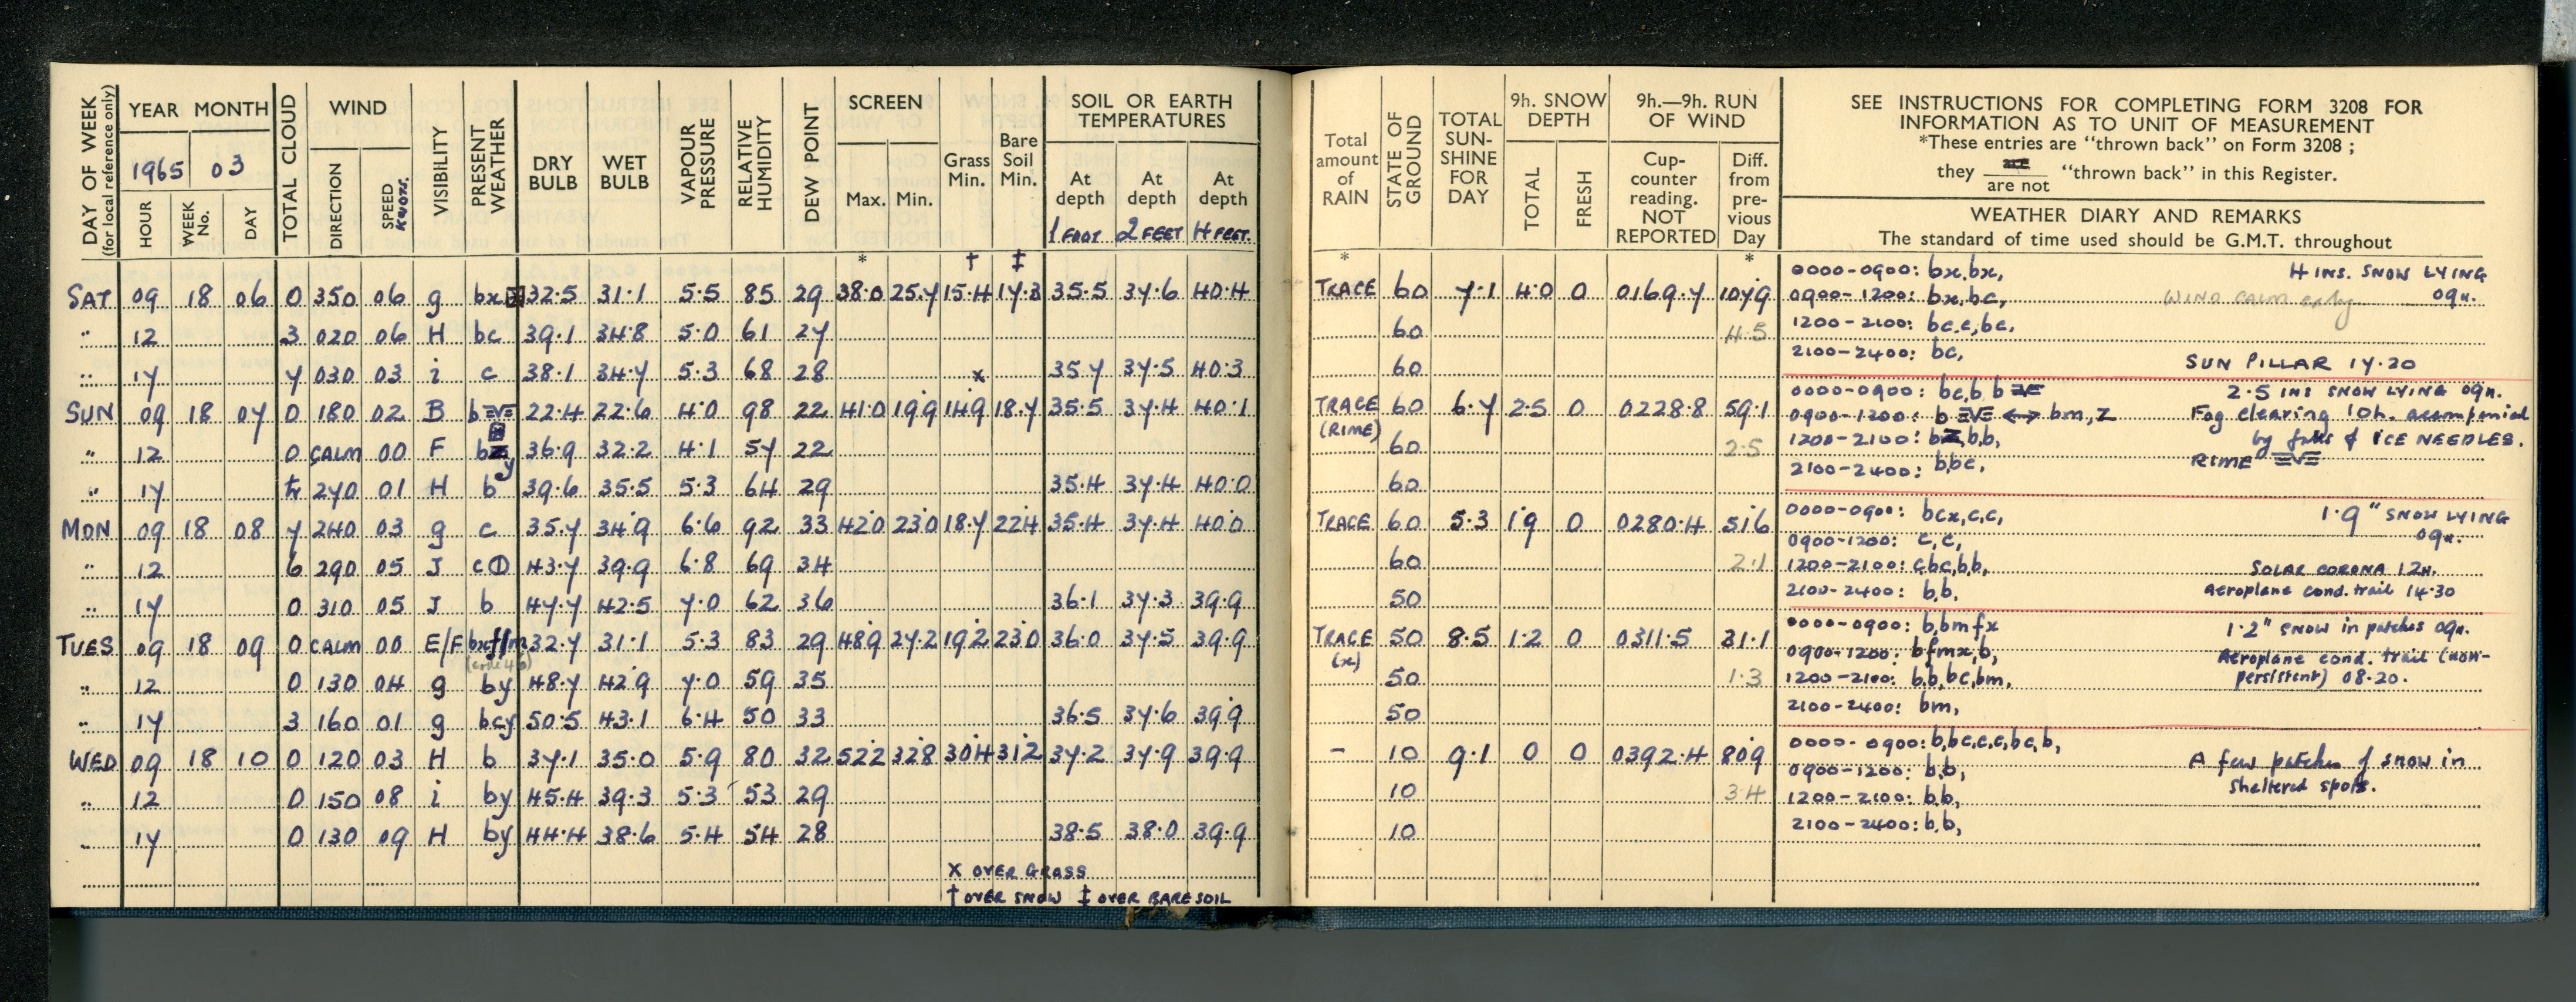 DAY OF WEEK
(for local reference only)
YEAR MONTH
1965 03
HOUR
WEEK No.
DAY
TOTAL CLOUD
WIND
DIRECTION
SPEED
KNOTS.
VISIBILITY
PRESENT WEATHER
DRY BULB
WET BULB
VAPOUR PRESSURE
RELATIVE HUMIDITY
DEW POINT
SCREEN
Max. Min.
Grass Min.
Bare Soil Min.
SOIL OR EARTH TEMPERATURES
At depth At depth At depth
1 FOOT 2 FEET 4 FEET
* † ‡
SAT 09 18 06 0 350 06 g bx 32.5 31.1 5.5 85 29 38.0 25.7 15.4 17.3 35.5 37.6 40.4
" 12 3 020 06 H bc 39.1 34.8 5.0 61 27
" 17 7 030 03 i c 38.1 34.7 5.3 68 28 x 35.7 37.5 40.3
SUN 09 18 07 0 180 02 B b 22.4 22.6 4.0 98 22 41.0 19.9 14.9 18.7 35.5 37.4 40.1
" 12 0 CALM 00 F bz y 36.9 32.2 4.1 57 22
" 17 tr 270 01 H b 39.6 35.5 5.3 64 29 35.4 37.4 40.0
MON 09 18 08 7 240 03 g c 35.7 34.9 6.6 92 33 42.0 23.0 18.7 22.4 35.4 37.4 40.0
" 12 6 290 05 J c⦶ 43.7 39.9 6.8 69 34
" 17 0 310 05 J b 47.7 42.5 7.0 62 36 36.1 37.3 39.9
TUES 09 18 09 0 CALM 00 E/F bxf/m 32.7 31.1 5.3 83 29 48.9 27.2 19.2 23.0 36.0 37.5 39.9
" 12 0 130 04 g by 48.7 42.9 7.0 59 35
" 17 3 160 01 g bcy 50.5 43.1 6.4 50 33 36.5 37.6 39.9
WED 09 18 10 0 120 03 H b 37.1 35.0 5.9 80 32 52.2 32.8 30.4 31.2 37.2 37.9 39.9
" 12 0 150 08 i by 45.4 39.3 5.3 53 29
" 17 0 130 09 H by 44.4 38.6 5.4 54 28 38.5 38.0 39.9
x OVER GRASS
† OVER SNOW ‡ OVER BARE SOIL
Total amount of RAIN
STATE OF GROUND
TOTAL SUN-SHINE FOR DAY
9h. SNOW DEPTH
TOTAL
FRESH
9h.—9h. RUN OF WIND
Cup-counter reading. NOT REPORTED
Diff. from pre-vious Day
* *
SEE INSTRUCTIONS FOR COMPLETING FORM 3208 FOR
INFORMATION AS TO UNIT OF MEASUREMENT
*These entries are "thrown back" on Form 3208 ;
they are / are not "thrown back" in this Register.
WEATHER DIARY AND REMARKS
The standard of time used should be G.M.T. throughout
TRACE 60 7.1 4.0 0 0169.7 107.9 0000-0900: bx,bx, 4 INS. SNOW LYING
0900-1200: bx,bc, 09H.
WIND CALM early
60 4.5 1200-2100: bc,c,bc,
60 2100-2400: bc, SUN PILLAR 17.20
TRACE 60 6.7 2.5 0 0228.8 59.1 0000-0900: bc,b,b 2.5 INS SNOW LYING 09H.
(RIME) 0900-1200: b ↔ bm,z Fog clearing 10h. accompanied
60 2.5 1200-2100: bz,b,b, by falls of ICE NEEDLES.
60 2100-2400: b,bc, RIME
TRACE 60 5.3 1.9 0 0280.4 51.6 0000-0900: bcx,c,c, 1.9" SNOW LYING
0900-1200: c,c, 09H.
60 2.1 1200-2100: c,bc,b,b, SOLAR CORONA 12H.
50 2100-2400: b,b, Aeroplane cond. trail 14.30
TRACE 50 8.5 1.2 0 0311.5 31.1 0000-0900: b,bmfx 1.2" SNOW in patches 09H.
(x) 0900-1200: bfmx,b, Aeroplane cond. trail (non-
50 1.3 1200-2100: b,b,bc,bm, persistent) 08.20.
50 2100-2400: bm,
- 10 9.1 0 0 0392.4 80.9 0000-0900: b,bc,c,c,bc,b, A few patches of snow in
0900-1200: b,b, sheltered spots.
10 3.4 1200-2100: b,b,
10 2100-2400: b,b,